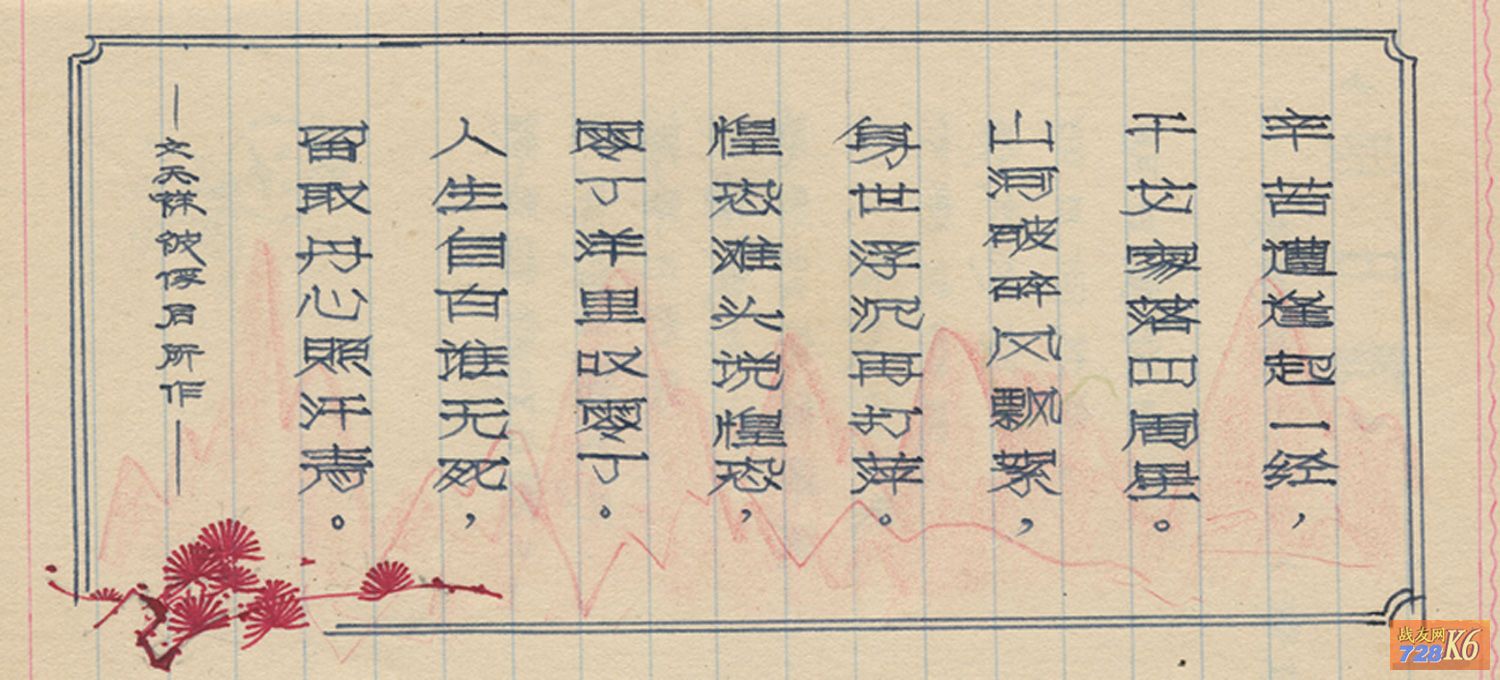 辛苦遭逢起一经，
干戈寥落四周星。
山河破碎风飘絮，
身世浮沉再打萍。
惶恐滩头说惶恐，
零丁洋里叹零丁。
人生自古谁无死，
留取丹心照汗青。
—文天祥被俘后所作—
战友网
728 K6